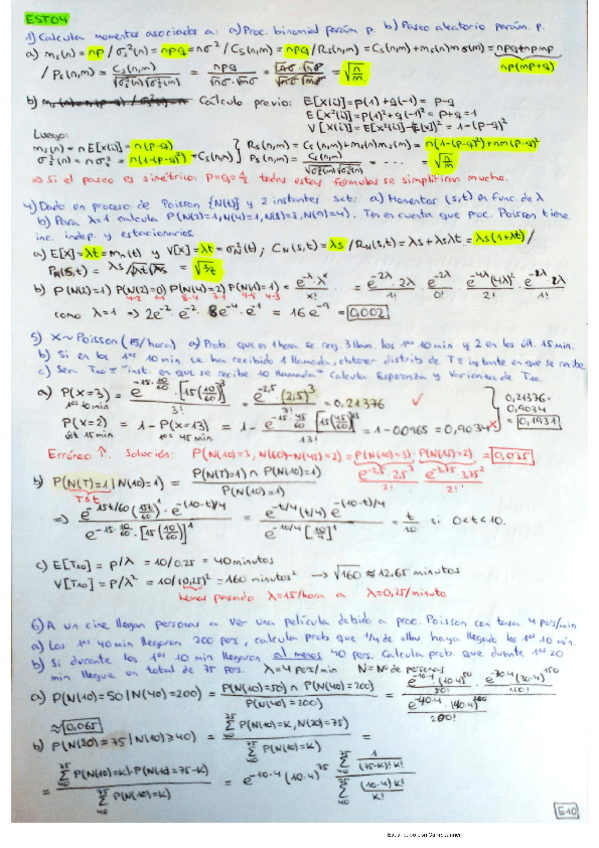 EST04
1) Calcula momentos asociados a: a) Proc. binomial parám p. b) Paseo aleatorio parám. p.
a) m_s(n) = np / σ_s²(n) = npq = nσ² / C_s(n,m) = npq / R_s(n,m) = C_s(n,m) + m_s(n) m_s(m) = npq + np mp
np(mp+q)
/ ρ_s(n,m) = C_s(n,m) / √σ_s²(n) √σ_s²(m) = npq / √nσ · √mσ = √n σ · √n σ / √n σ √m σ = √(n/m)
b) Calculo previo: E[X(i)] = p(1) + q(-1) = p-q
E[X²(i)] = p(1)² + q(-1)² = p+q = 1
V[X(i)] = E[X²(i)] - E[X]² = 1-(p-q)²
Luego:
m_s(n) = n E[X(i)] = n(p-q)
σ_s²(n) = nσ_x² = n(1-(p-q)²) = C_s(n,m)
R_s(n,m) = C_s(n,m) + m_s(n) m_s(m) = n(1-(p-q)²) + nm(p-q)²
ρ_s(n,m) = C_s(n,m) / √σ_s²(n) √σ_s²(m) = ... = √(n/m)
⇒ Si el paseo es simétrico: p=q=1/2 todas estas fórmulas se simplifican mucho.
4) Dado en proceso de Poisson {N(t)} y 2 instantes s<t: a) Momentos (s,t) en func. de λ
b) Para λ=1 calcula P(N(2)=1, N(4)=1, N(8)=3, N(9)=4). Ten en cuenta que proc. Poisson tiene
inc. indep. y estacionarios
a) E[X] = λt = m_N(t) y V[X] = λt = σ_N²(t); C_N(s,t) = λs / R_N(s,t) = λs + λsλt = λs(1+λt) /
ρ_N(s,t) = λs/√λt√λs = √(s/t)
b) P(N(2)=1) P(N(2)=0) P(N(4)=2) P(N(1)=1) = e^-λ · λ^x / x! = e^-2λ · 2λ / 1! · e^-2λ / 0! · e^-4λ (4λ)² / 2! · e^-λ λ / 1!
4-2 1-1 8-4 3-1 9-8 4-3
como λ=1 → 2e⁻² · e⁻² · 8e⁻⁴ · e⁻¹ = 16e⁻⁹ = 0,002
5) X~Poisson (15/hora) a) Prob. que en 1 hora se reg. 3 llam. los 1ros 10 min y 2 en los últ. 15 min.
b) Si en los 1ros 10 min se ha recibido 1 llamada, obtener distrib de T = instante en que se recibe
c) Sea T₁₀ = "inst. en que se recibe 10 llamada" Calcula Esperanza y Varianza de T₁₀.
a) P(X=3) = e^(-15·10/60) · [15(10/60)]³ / 3! = e^-2,5 · (2,5)³ / 3! = 0,21376 ✓
1ros 10 min
P(X=2) = 1 - P(X=13) = 1 - e^(-15·45/60) [15(45/60)]^13 / 13! = 1 - 0,0965 = 0,9034 ✗
últ 15 min 1ros 45 min
0,21376 · 0,9034 = 0,1931
Erróneo ↑. Solución: P(N(10)=3, N(60)-N(45)=2) = P(N(10)=3) · P(N(15)=2) = 0,035
e^-2,5 · 2,5³ / 3! e^-3,75 · 3,75² / 2!
b) P(N(T)=1 | N(10)=1) = P(N(T)=1) ∩ P(N(10)=1) / P(N(10)=1)
T≤t
⇒ e^-15t/60 (15t/60)¹ · e^-(10-t)/4 / e^(-15·10/60) · [15(10/60)]¹ = e^-t/4 (t/4) e^-(10-t)/4 / e^-10/4 [10/4]¹ = t/10 si 0<t<10.
c) E[T₁₀] = p/λ = 10/0.25 = 40 minutos
V[T₁₀] = p/λ² = 10/(0,25)² = 160 minutos² → √160 ≈ 12,65 minutos
hemos pasado λ=15/hora a λ=0,25/minuto
6) A un cine llegan personas a ver una película debido a proc. Poisson con tasa 4 pers/min
a) Los 1ros 40 min llegaron 200 pers, calcula prob que 1/4 de ellos haya llegado los 1ros 10 min.
b) Si durante los 1ros 10 min llegaron al menos 40 pers. Calcula prob. que durante 1ros 20
min llegue un total de 75 pers. λ=4 pers/min N=Nº de personas
a) P(N(10)=50 | N(40)=200) = P(N(10)=50) ∩ P(N(40)=200) / P(N(40)=200) = e^-10·4 (10·4)^50 / 50! · e^-30·4 (30·4)^150 / 150! / e^-40·4 · (40·4)^200 / 200!
≈ 0,065
b) P(N(20)=75 | N(10)≥40) = Σ₄₀⁷⁵ P(N(10)=K, N(20)=75) / Σ₄₀⁷⁵ P(N(10)=K) =
= Σ₄₀⁷⁵ P(N(10)=K) · P(N(10)=75-K) / Σ₄₀⁷⁵ P(N(10)=K) = e^-10·4 (10·4)^75 Σ₄₀⁷⁵ 1/(75-K)! K! / Σ₄₀⁷⁵ (10·4)^K / K!
E10